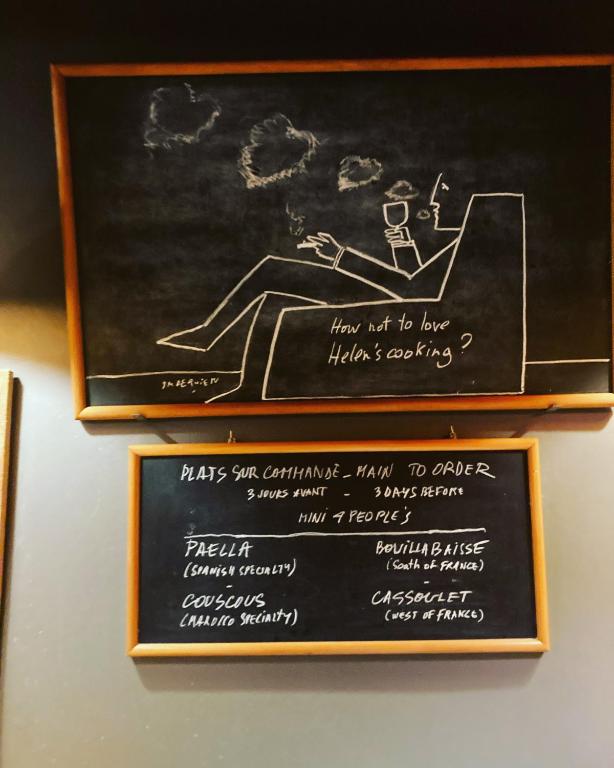 How not to love
Helen's cooking?
PLATS SUR COMMANDE_MAIN TO ORDER
3 JOURS AVANT - 3 DAYS BEFORE
MINI 4 PEOPLE'S
PAELLA BOUILLABAISSE
(SPANISH SPECIALTY) (SOUTH OF FRANCE)
- -
COUSCOUS CASSOULET
(MAROCCO SPECIALTY) (WEST OF FRANCE)